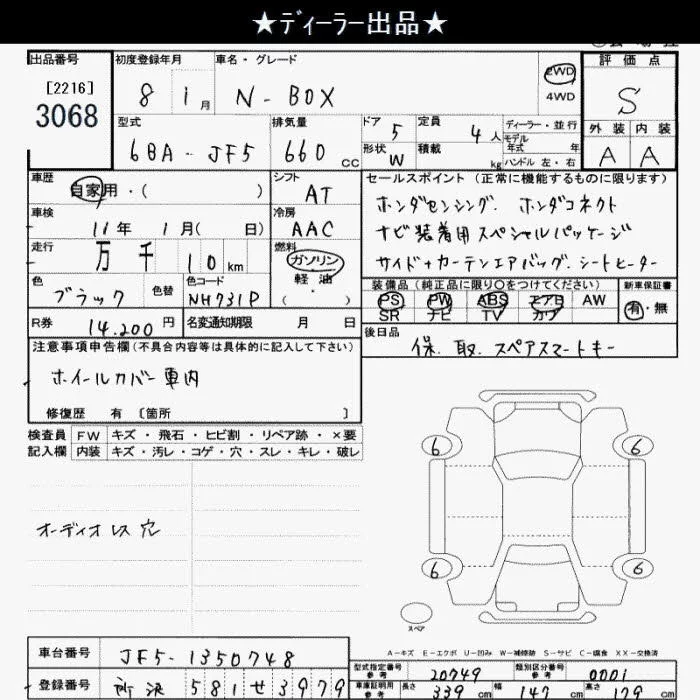 ★ディーラー出品★
出品番号 初度登録年月 車名・グレード 2WD 評価点
[2216] 8 1月 N-BOX 4WD S
3068
型式 排気量 ドア 5 定員 4人 ディーラー・並行 外装 内装
6BA-JF5 660 cc 形状 W 積載 kg モデル年式 年 A A
ハンドル 左・右
車歴 自家用・( ) シフト AT セールスポイント(正常に機能するものに限ります)
ホンダセンシング. ホンダコネクト
車検 11年 1月( 日) 冷房 AAC ナビ装着用スペシャルパッケージ
走行 万 千 10km 燃料 ガソリン サイド+カーテンエアバッグ.シートヒーター
軽油
( )
色 ブラック 色替 色コード NH731P 装備品(純正品に限り○をつけてください) 新車保証書
PS PW ABS エアB AW 有・無
SR ナビ TV カワ
R券 14.200円 名変通知期限 月 日 後日品
保. 取. スペアスマートキー
注意事項申告欄(不具合内容等は具体的に記入して下さい)
ホイールカバー車内
修復歴 有 〔箇所 〕
検査員 FW キズ・飛石・ヒビ割・リペア跡・×要
記入欄 内装 キズ・汚レ・コゲ・穴・スレ・キレ・破レ
6 6
オーディオレス穴
6 6
スペア
A-キズ E-エクボ U-凹み W-補修跡 S-サビ C-腐食 XX-交換済
車台番号 JF5-1350748 型式指定番号 参考 20749 類別区分番号 参考 0001
登録番号 所沢 581 せ 3979 車庫証明用 参考 長さ 339cm 幅 147cm 高さ 179cm